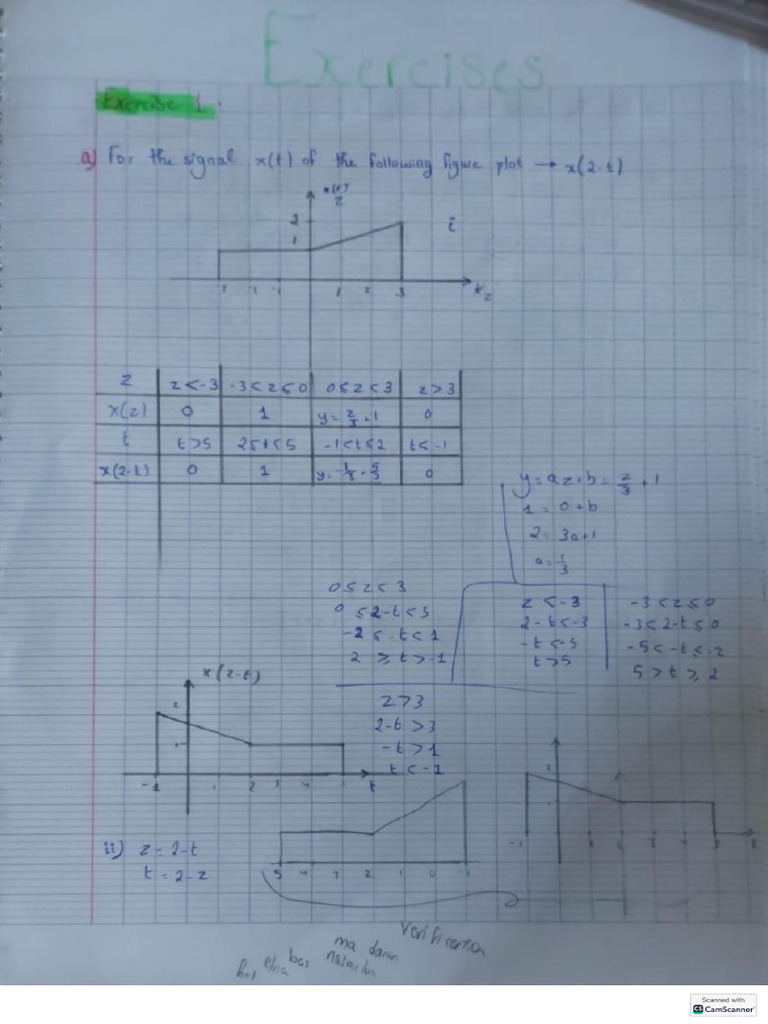 Exercises
Exercise 1.
a) For the signal x(t) of the following figure plot → x(2-t)
x(t)
z
2
1
i
-1
1 2 3
z
z z<-3 -3<z≤0 0≤z<3 z>3
x(z) 0 1 y= z/3 +1 0
t t>5 2≤t<5 -1<t≤2 t<-1
x(2-t) 0 1 y= -t/3 + 5/3 0
y= az+b = z/3 +1
1 = 0+b
2 = 3a+1
a= 1/3
0≤z<3
0≤2-t<3
-2≤-t<1
2≥t>-1
z<-3
2-t<-3
-t<-5
t>5
-3<z≤0
-3<2-t≤0
-5<-t≤-2
5>t≥2
z>3
2-t>3
-t>1
t<-1
x(2-t)
2
1
-1 1 2 3 4 5 t
ii) z = 2-t
t = 2-z
5 4 3 2 1 0 -1
2
-1 1 2 3 4 5 t
Verification
ma
bas
Scanned with
CS CamScanner